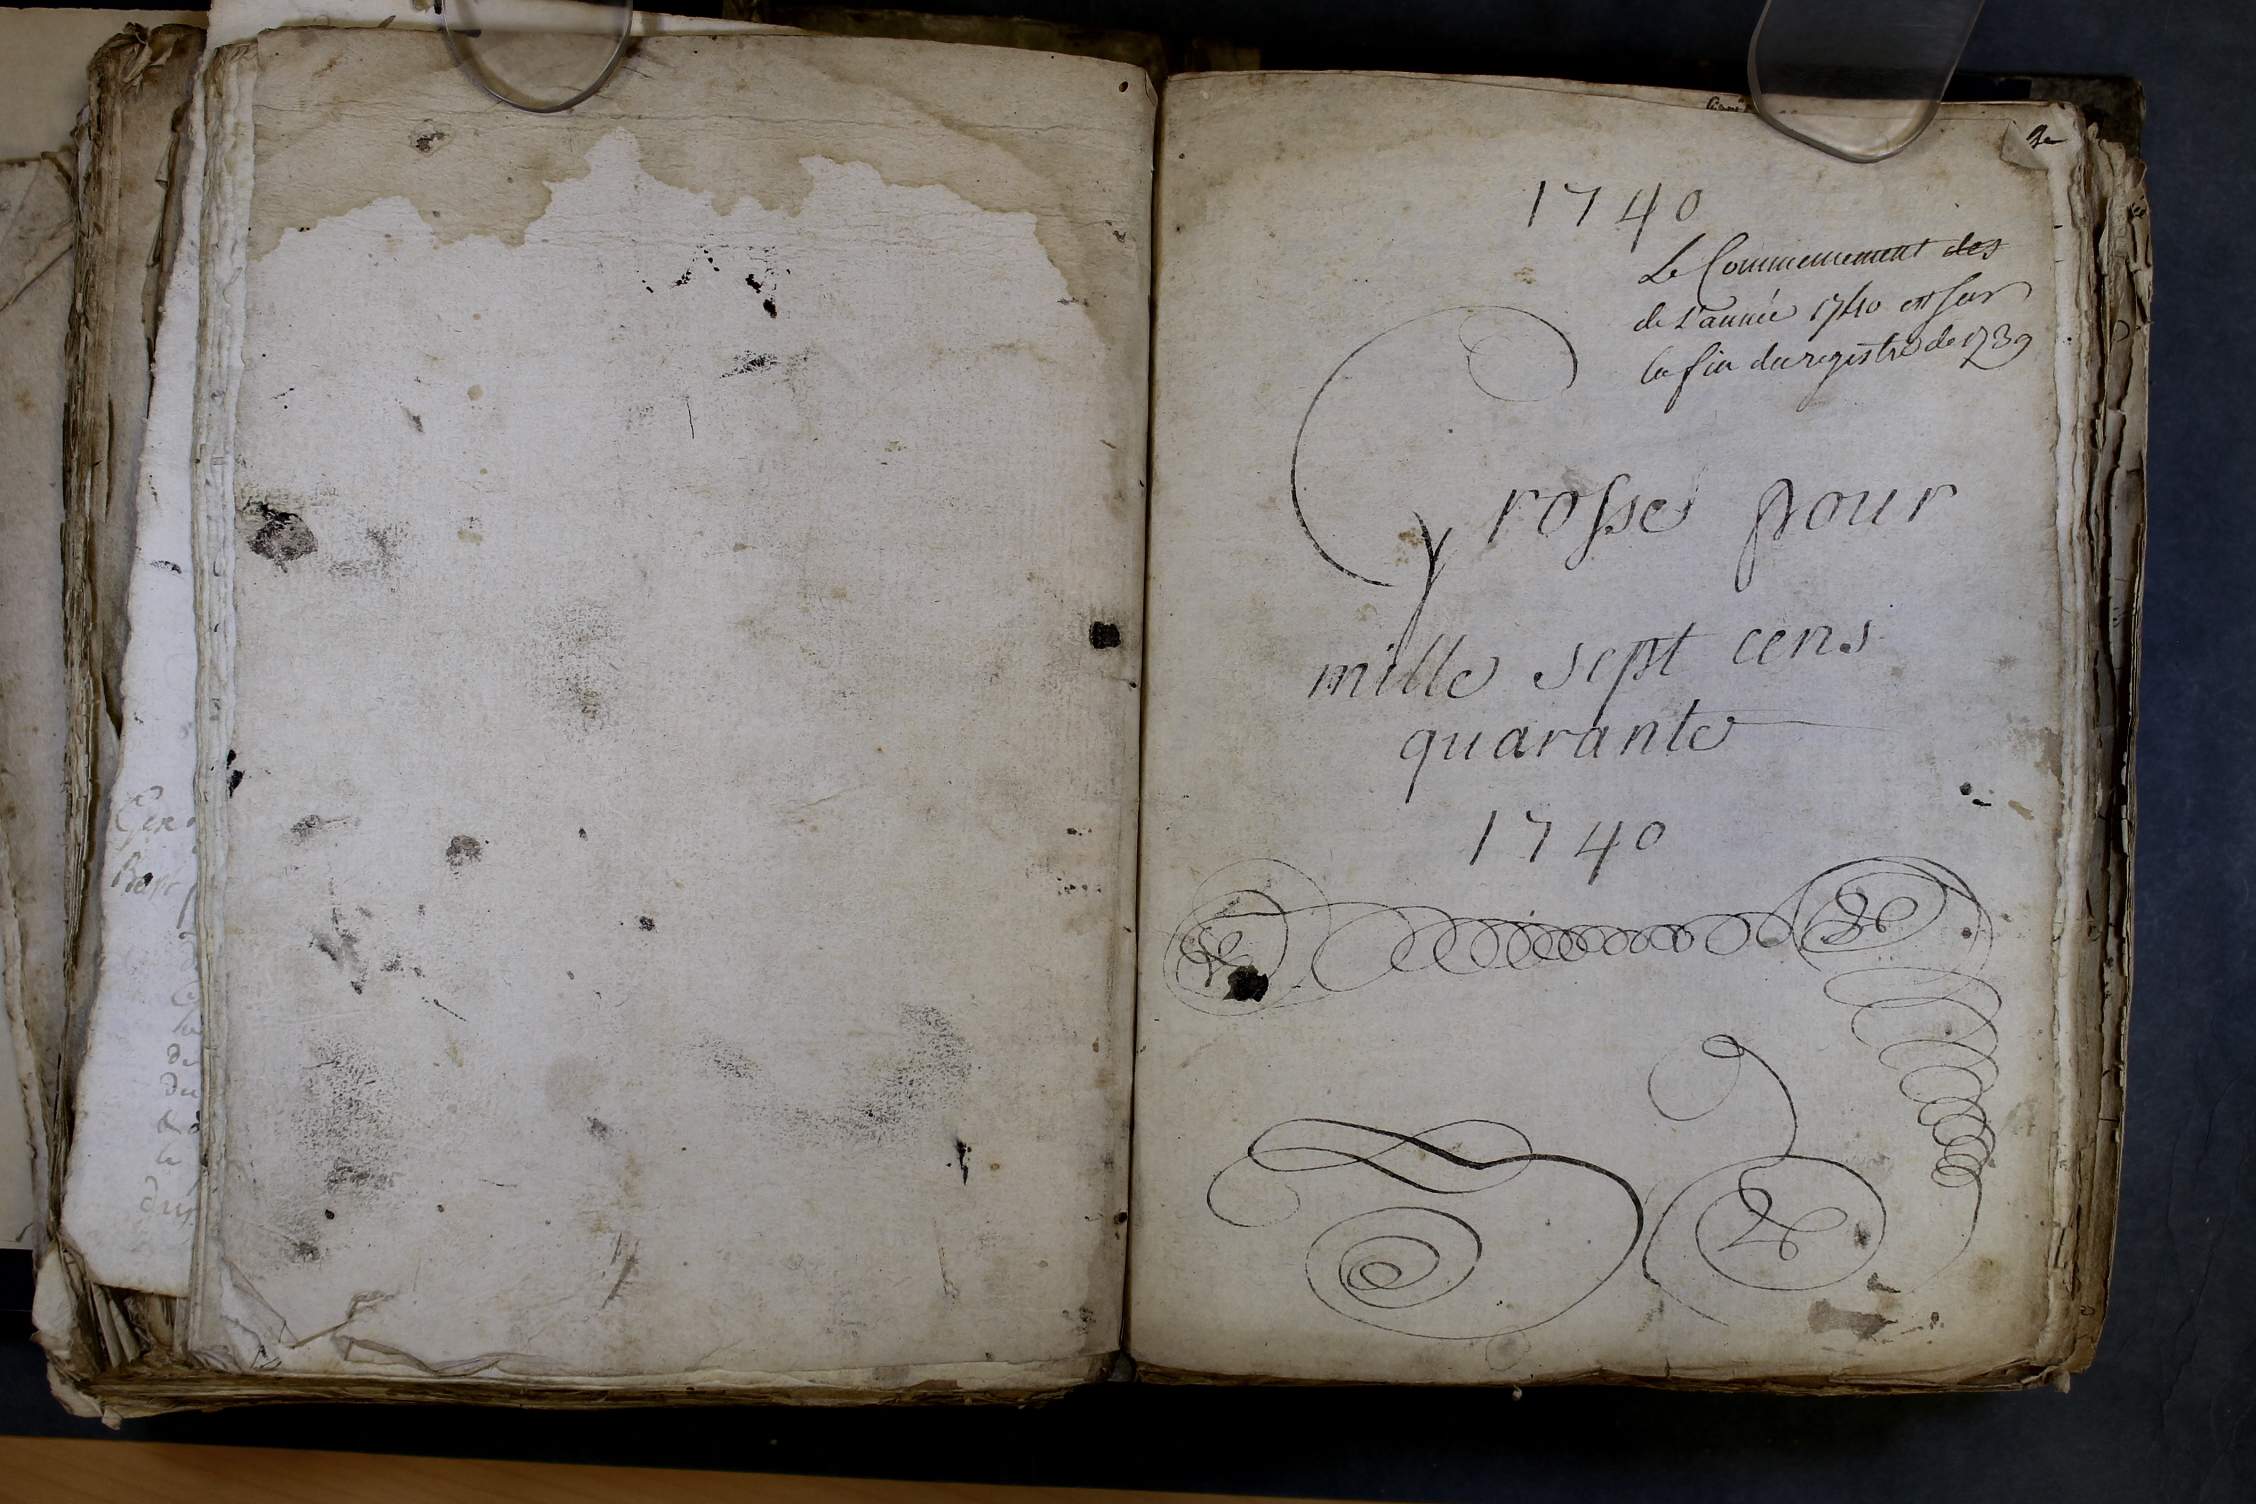 1740
Le Commencement des
de l'année 1740 est sur
la fin du registre de 1739
Grosse pour
mille sept cens
quarante
1740